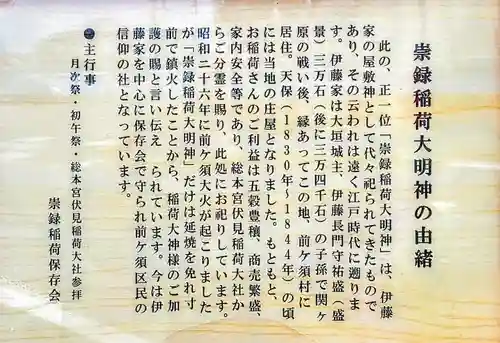 崇録稲荷大明神の由緒
此の、正一位「崇録稲荷大明神」は、伊藤
家の屋敷神として代々祀られてきたもので
あり、その云われは遠く江戸時代に遡りま
す。伊藤家は大垣城主、伊藤長門守祐盛（盛
景）三万石（後に三万四千石）の子孫で関ヶ
原の戦い後、縁あってこの地、前ケ須村に
居住。天保（1830年～1844年）の頃
には当地の庄屋となりました。もともと、
お稲荷さんのご利益は五穀豊穣、商売繁盛、
家内安全等であり、総本宮伏見稲荷大社か
らご分霊を賜り、此処にお祀りしています。
昭和二十六年に前ケ須大火が起こりました
が「崇録稲荷大明神」だけは延焼を免れ寸
前で鎮火したことから、稲荷大神様のご加
護の賜と言い伝え られています。今は伊
藤家を中心に保存会で守られ前ケ須区民の
信仰の社となっています。
●主行事
月次祭・初午祭・総本宮伏見稲荷大社参拝
崇録稲荷保存会